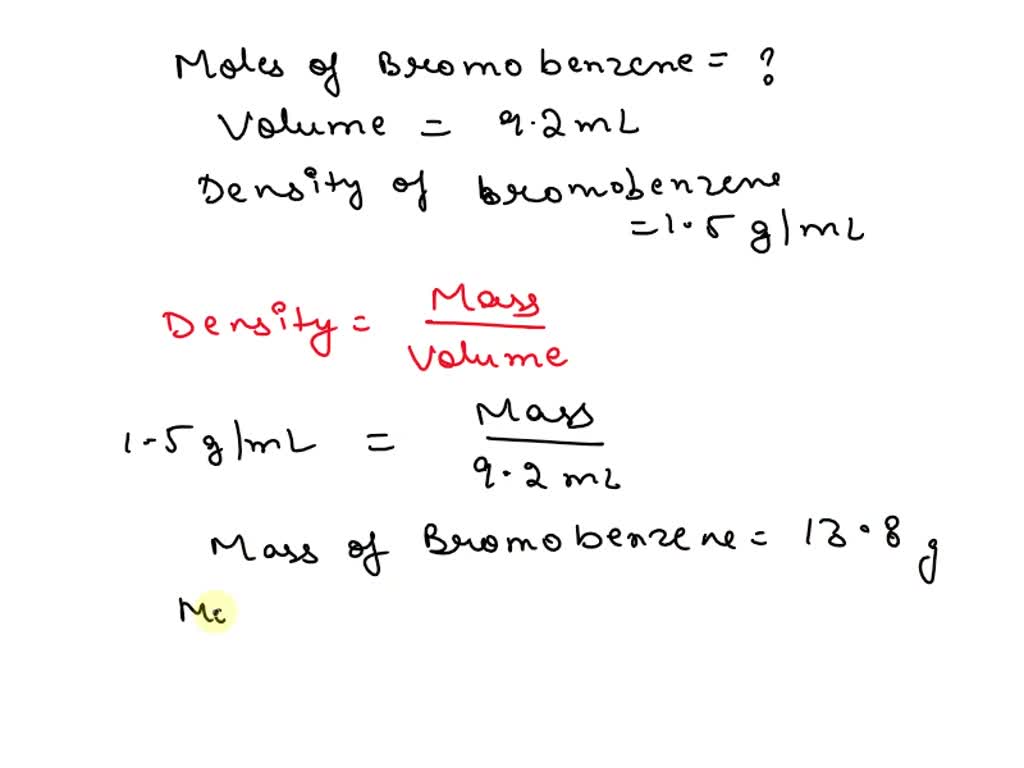 Moles of Bromobenzene = ?
Volume = 9.2 mL
Density of bromobenzene
= 1.5 g/mL
Density = Mass
Volume
1.5 g/mL = Mass
9.2 mL
Mass of Bromobenzene = 13.8 g
Mo